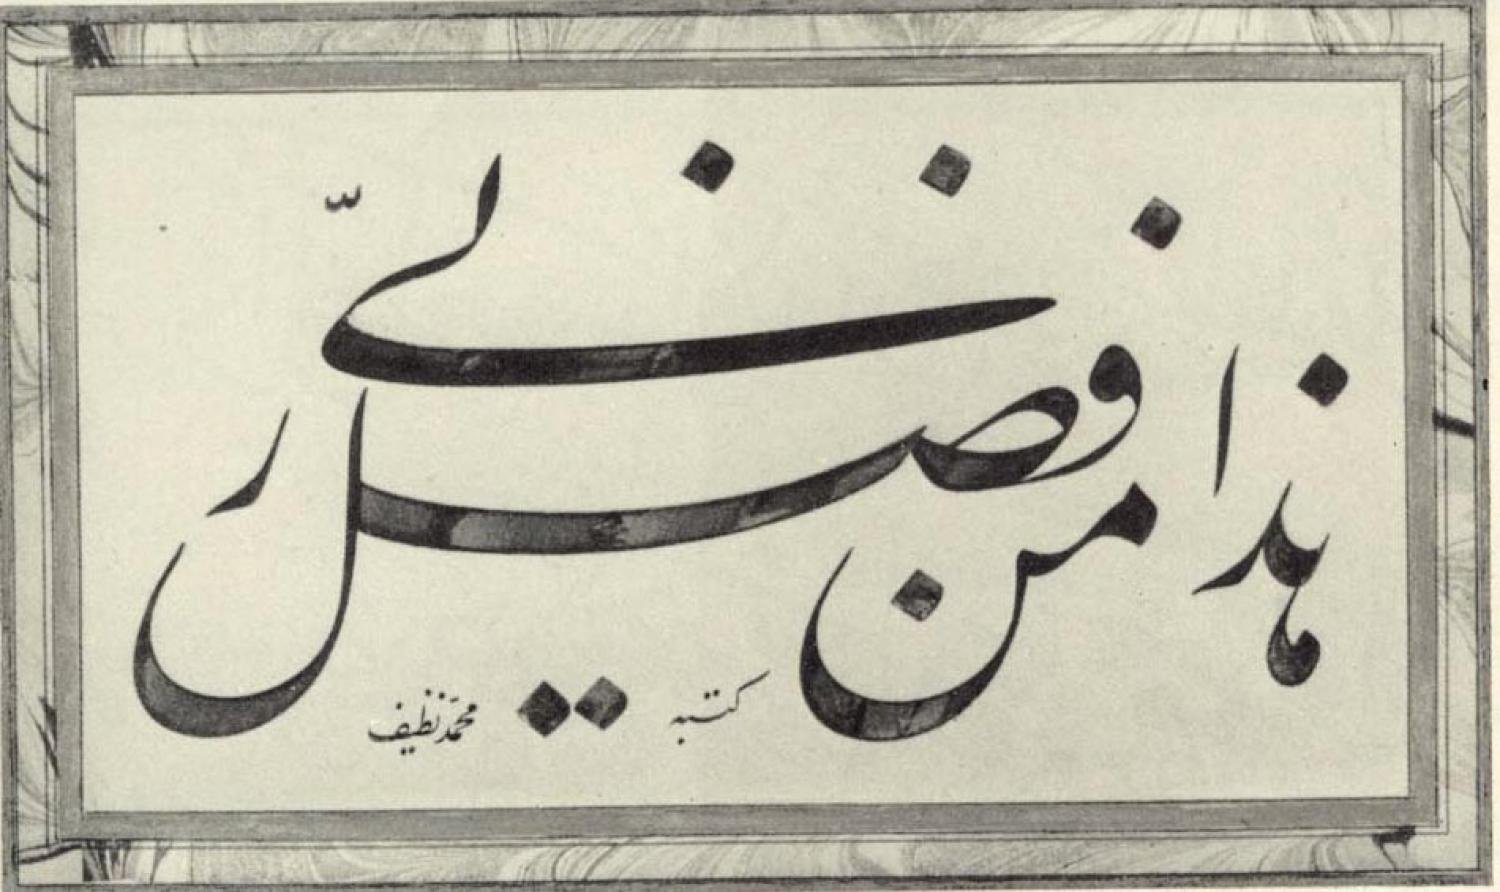 هذا من فضل ربّي
كتبه محمد نظيف